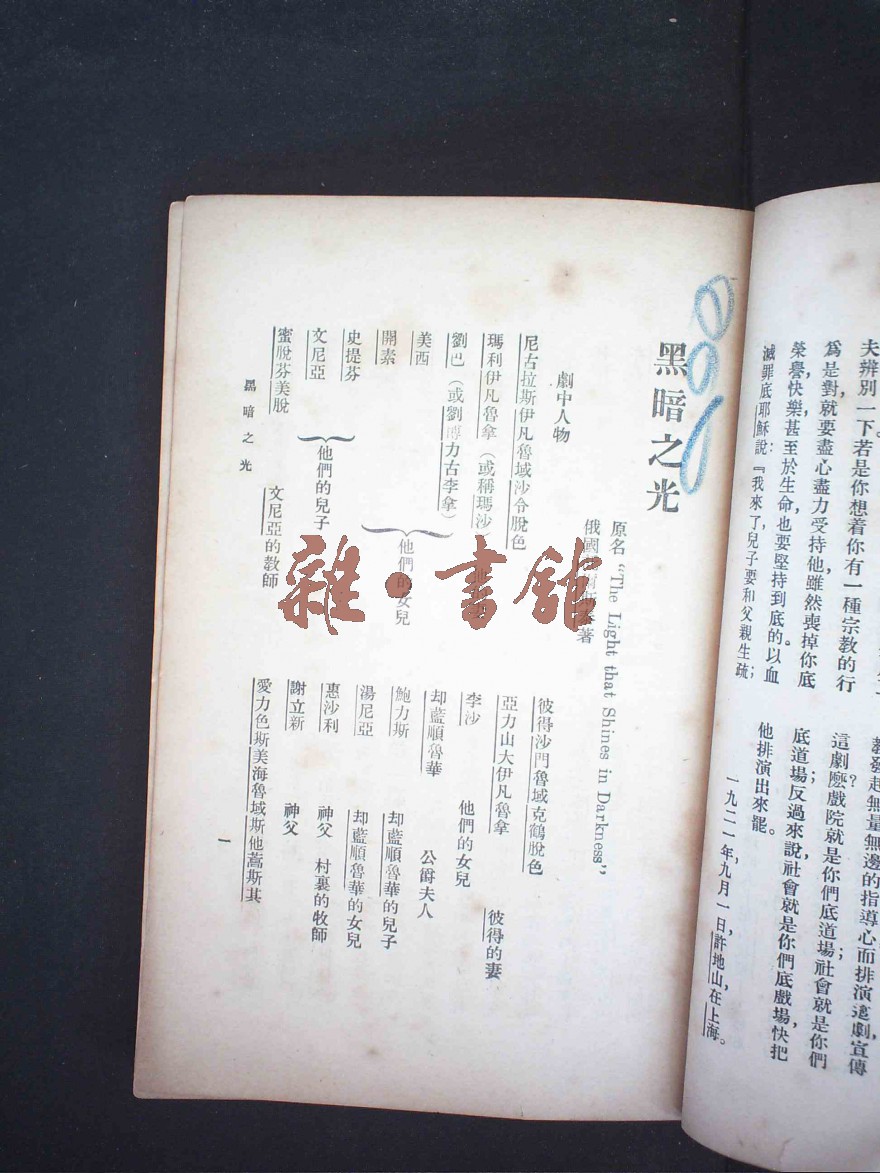 夫辨別一下。若是你想着你有一種宗教的行
爲是對就要盡心盡力受持他雖然喪掉你底
榮譽，快樂，甚至於生命也要堅持到底的以血
滅罪底耶穌說：『我來了，兒子要和父親生疏；
教發起無量無邊的指導心而排演這劇，宣傳
這劇麽？戲院就是你們底道場；社會就是你們
底道場；反過來說，社會就是你們底戲場，快把
他排演出來罷。
一九二一年，九月一日，許地山，在上海。
黑暗之光
原名 “The Light that Shines in Darkness”
俄國 著
劇中人物
尼古拉斯伊凡魯域沙令脫色
瑪利伊凡魯拿（或稱瑪沙
劉巴（或劉博力古李拿）
美西
開素
他們的女兒
史提芬
文尼亞
他們的兒子
蜜脫芬美脫 文尼亞的教師
彼得沙門魯域克鶴脫色
亞力山大伊凡魯拿 彼得的妻
李沙 他們的女兒
却藍順魯華 公爵夫人
鮑力斯 却藍順魯華的兒子
湯尼亞 却藍順魯華的女兒
惠沙利 神父 村裏的牧師
謝立新 神父
愛力色斯美海魯域斯他蒿斯其
黑暗之光
一
雜·書館